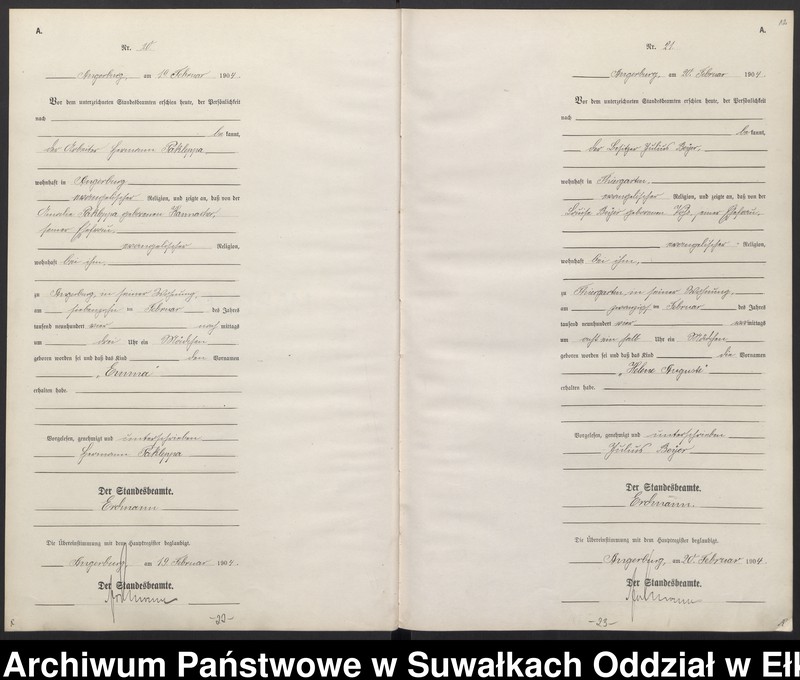 A.
Nr. 20
Angerburg, am 19. Februar 1904.
Vor dem unterzeichneten Standesbeamten erschien heute, der Persönlichkeit
nach
be kannt,
der Arbeiter Hermann Pakleppa
wohnhaft in Angerburg
evangelischer Religion, und zeigte an, daß von der
Amalie Pakleppa geborenen
seiner Ehefrau,
evangelischer Religion,
wohnhaft bei ihm,
zu Angerburg, in seiner Wohnung,
am siebenzehn ten Februar des Jahres
tausend neunhundert vier nach mittags
um drei Uhr ein Mädchen
geboren worden sei und daß das Kind den Vornamen
„Emma“
erhalten habe.
Vorgelesen, genehmigt und unterschrieben
Hermann Pakleppa
Der Standesbeamte.
Erdmann
Die Übereinstimmung mit dem Hauptregister beglaubigt.
Angerburg, am 19. Februar 1904.
Der Standesbeamte.
Erdmann
-22-
A.
Nr. 21.
Angerburg, am 20. Februar 1904.
Vor dem unterzeichneten Standesbeamten erschien heute, der Persönlichkeit
nach
be kannt,
der Besitzer Julius Beyer,
wohnhaft in Thiergarten,
evangelischer Religion, und zeigte an, daß von der
Louise Beyer geborenen seiner Ehefrau,
evangelischer Religion,
wohnhaft bei ihm,
zu Thiergarten, in seiner Wohnung,
am zwanzigsten Februar des Jahres
tausend neunhundert vier vormittags
um acht ein halb Uhr ein Mädchen
geboren worden sei und daß das Kind die Vornamen
„Helene Auguste“
erhalten habe.
Vorgelesen, genehmigt und unterschrieben
Julius Beyer
Der Standesbeamte.
Erdmann.
Die Übereinstimmung mit dem Hauptregister beglaubigt.
Angerburg, am 20. Februar 1904.
Der Standesbeamte.
Erdmann
-23-
Archiwum Państwowe w Suwałkach Oddział w Ełk